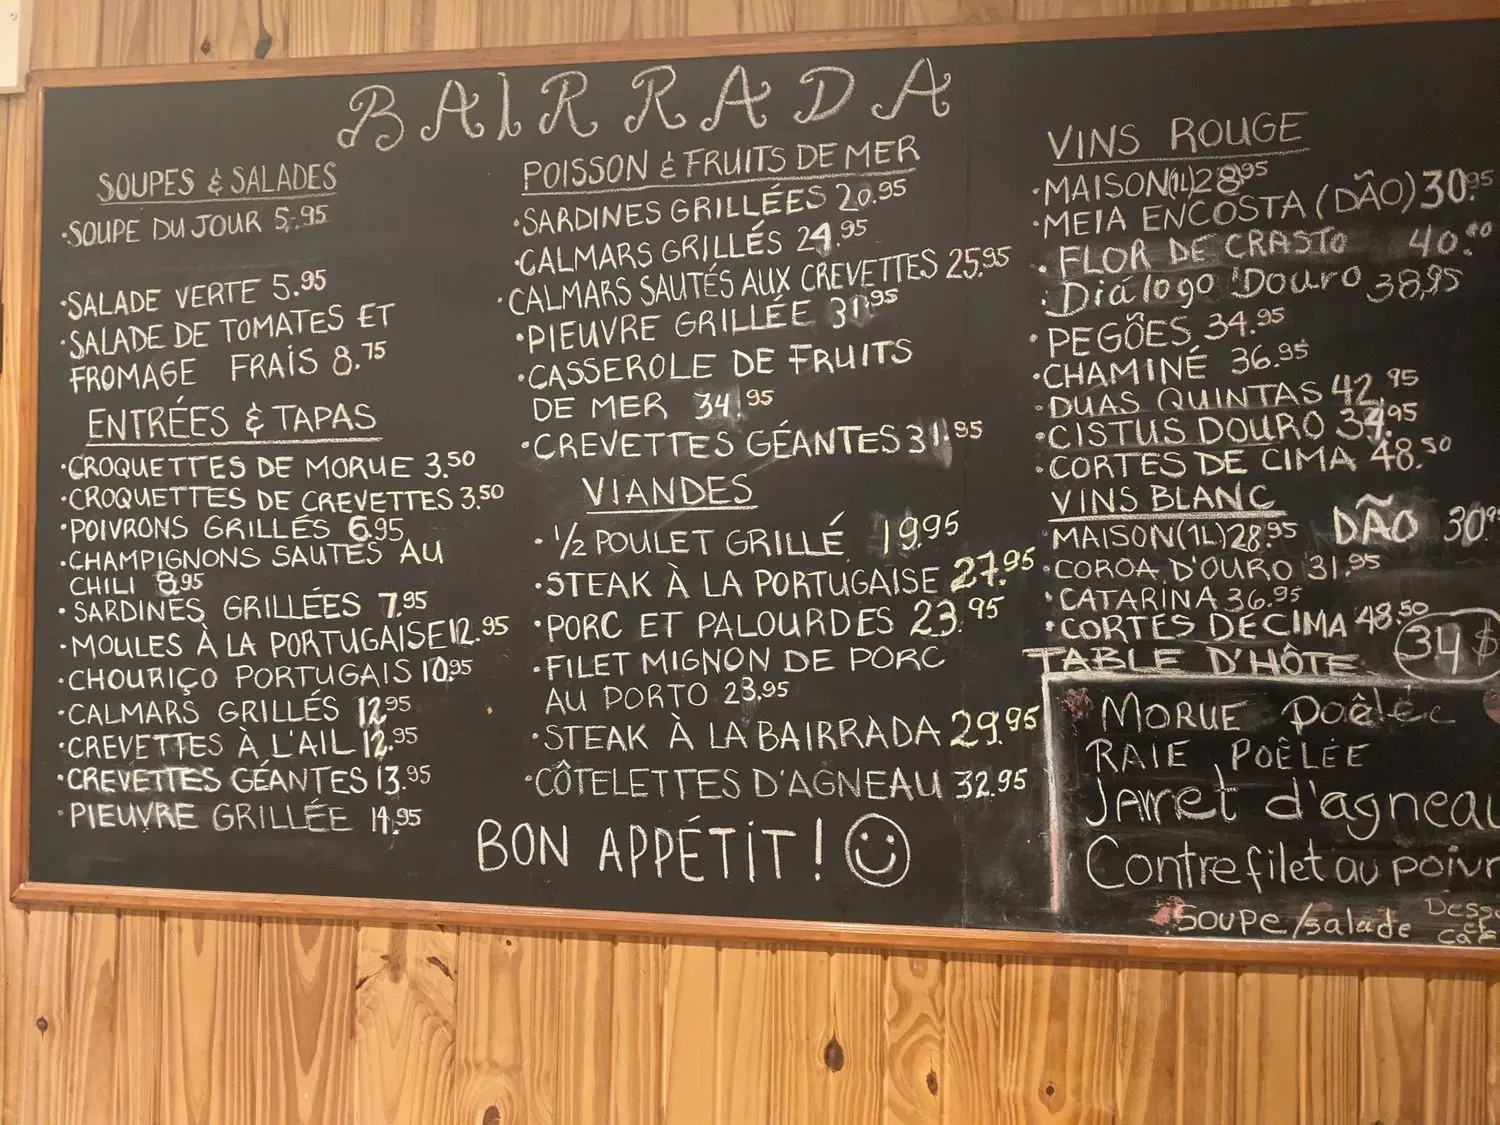 BAIRRADA
SOUPES & SALADES
·SOUPE DU JOUR 5.95
·SALADE VERTE 5.95
·SALADE DE TOMATES ET
FROMAGE FRAIS 8.75
ENTRÉES & TAPAS
·CROQUETTES DE MORUE 3.50
·CROQUETTES DE CREVETTES 3.50
·POIVRONS GRILLÉS 6.95
·CHAMPIGNONS SAUTÉS AU
CHILI 8.95
·SARDINES GRILLÉES 7.95
·MOULES À LA PORTUGAISE 12.95
·CHOURIÇO PORTUGAIS 10.95
·CALMARS GRILLÉS 12.95
·CREVETTES À L'AIL 12.95
·CREVETTES GÉANTES 13.95
·PIEUVRE GRILLÉE 14.95
POISSON & FRUITS DE MER
·SARDINES GRILLÉES 20.95
·CALMARS GRILLÉS 24.95
·CALMARS SAUTÉS AUX CREVETTES 25.95
·PIEUVRE GRILLÉE 31.95
·CASSEROLE DE FRUITS
DE MER 34.95
·CREVETTES GÉANTES 31.95
VIANDES
·½ POULET GRILLÉ 19.95
·STEAK À LA PORTUGAISE 27.95
·PORC ET PALOURDES 23.95
·FILET MIGNON DE PORC
AU PORTO 23.95
·STEAK À LA BAIRRADA 29.95
·CÔTELETTES D'AGNEAU 32.95
BON APPÉTIT!
VINS ROUGE
·MAISON(1L) 28.95
·MEIA ENCOSTA (DÃO) 30.95
·FLOR DE CRASTO 40.00
·Diálogo Douro 38,95
·PEGÕES 34.95
·CHAMINÉ 36.95
·DUAS QUINTAS 42.95
·CISTUS DOURO 34.95
·CORTES DE CIMA 48.50
VINS BLANC
·MAISON(1L) 28.95 DÃO 30.95
·COROA D'OURO 31.95
·CATARINA 36.95
·CORTES DE CIMA 48.50
TABLE D'HÔTE 34$
MORUE Poêlée
RAIE POÊLÉE
Jarret d'agneau
Contrefilet au poivr
Soupe/salade